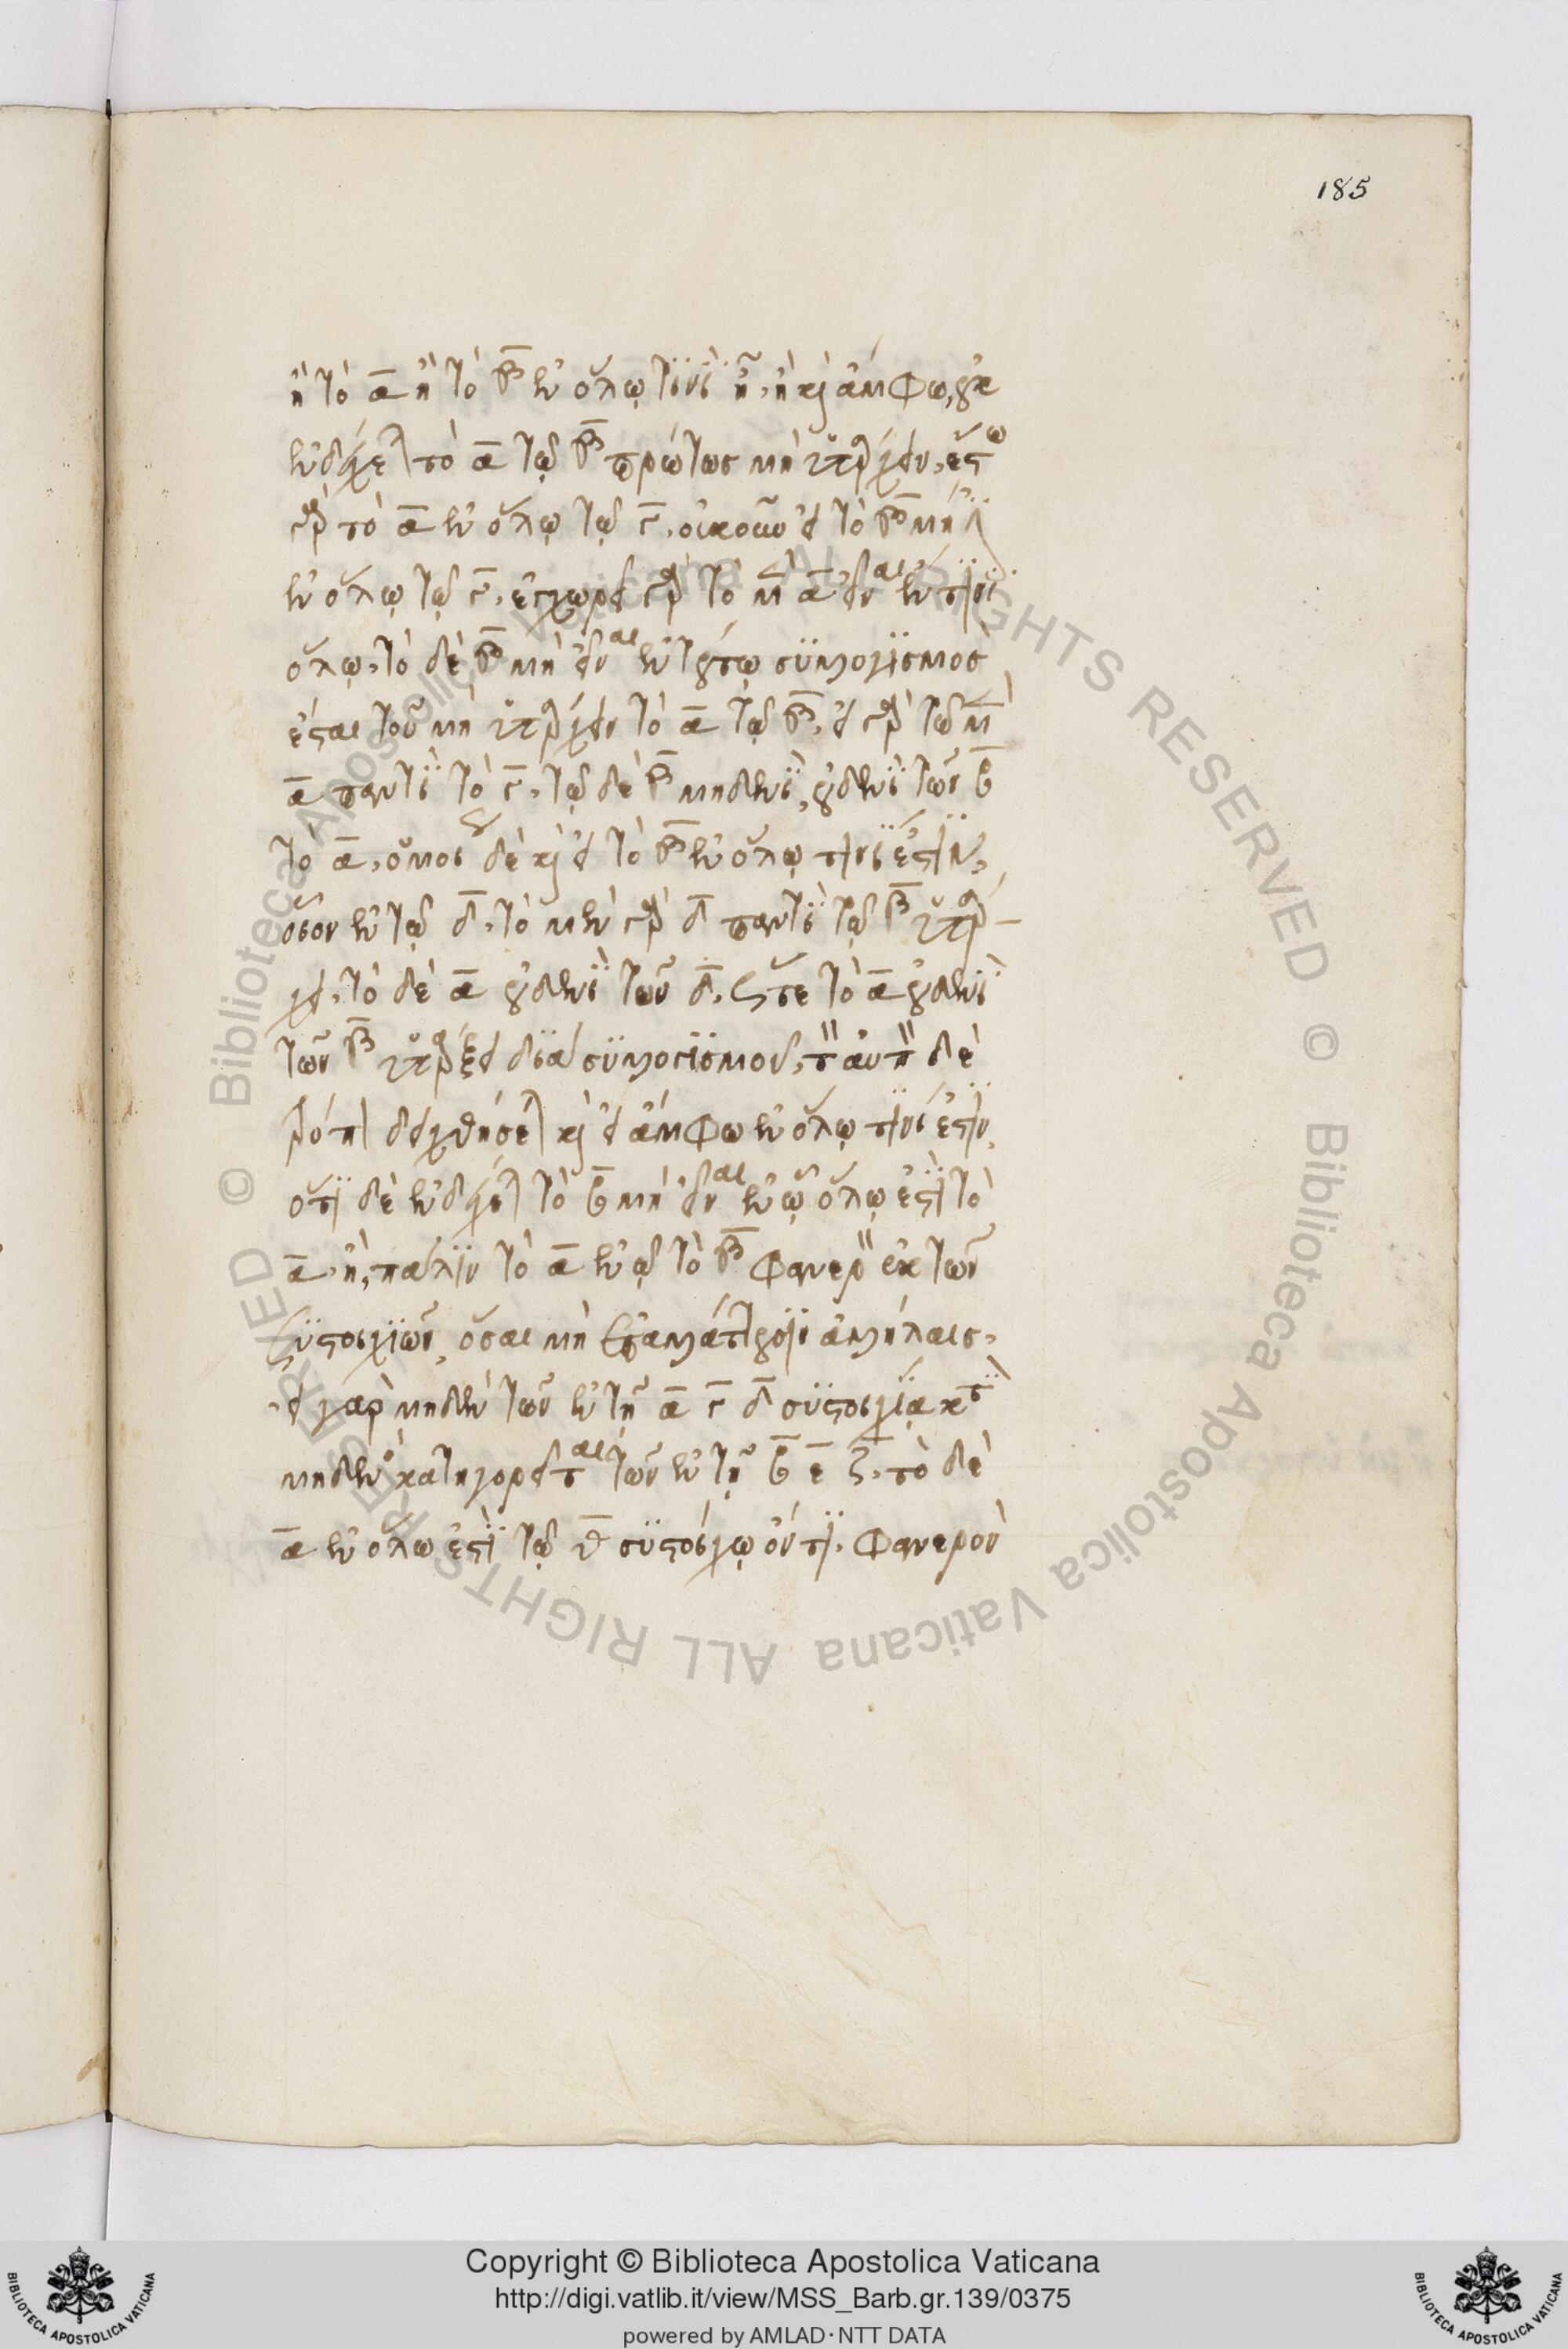 185
ἢ τὸ α ἢ τὸ β ἐν ὅλῳ τινὶ ᾖ, ἢ καὶ ἄμφω, οὐκ
ἐνδέχεται τὸ α τῷ β πρώτως μὴ ὑπάρχειν, ἔστω
γὰρ τὸ α ἐν ὅλῳ τῷ γ. οὐκοῦν εἰ τὸ β μή ἐστιν
ἐν ὅλῳ τῷ γ, ἐγχωρεῖ γὰρ τὸ μὲν α εἶναι ἔν τινι
ὅλῳ, τὸ δὲ β μὴ εἶναι ἐν τούτῳ συλλογισμὸς
ἔσται τοῦ μὴ ὑπάρχειν τὸ α τῷ β, εἰ γὰρ τῷ μὲν
α παντὶ τὸ γ, τῷ δὲ β μηδενί, οὐδενὶ τῶν β
τὸ α, ὁμοίως δὲ καὶ εἰ τὸ β ἐν ὅλῳ τινί ἐστιν,
οἷον ἐν τῷ δ, τὸ μὲν γὰρ δ παντὶ τῷ β ὑπάρ-
χει, τὸ δὲ α οὐδενὶ τῶν δ, ὥστε τὸ α οὐδενὶ
τῶν β ὑπάρξει διὰ συλλογισμοῦ, τὸν αὐτὸν δὲ
τρόπον δειχθήσεται καὶ εἰ ἄμφω ἐν ὅλῳ τινί ἐστιν.
ὅτι δὲ ἐνδέχεται τὸ β μὴ εἶναι ἐν ᾧ ὅλῳ ἐστὶ τὸ
α, ἢ πάλιν τὸ α ἐν ᾧ τὸ β φανερὸν ἐκ τῶν
συστοιχιῶν, ὅσαι μὴ ἐπαλλάττουσιν ἀλλήλαις,
εἰ γὰρ μηδὲν τῶν ἐν τῇ α γ δ συστοιχίᾳ κατὰ
μηδενὸς κατηγορεῖται τῶν ἐν τῇ β ε ζ, τὸ δὲ
α ἐν ὅλῳ ἐστὶ τῷ θ συστοίχῳ ὄντι, φανερὸν
Copyright © Biblioteca Apostolica Vaticana
http://digi.vatlib.it/view/MSS_Barb.gr.139/0375
powered by AMLAD·NTT DATA